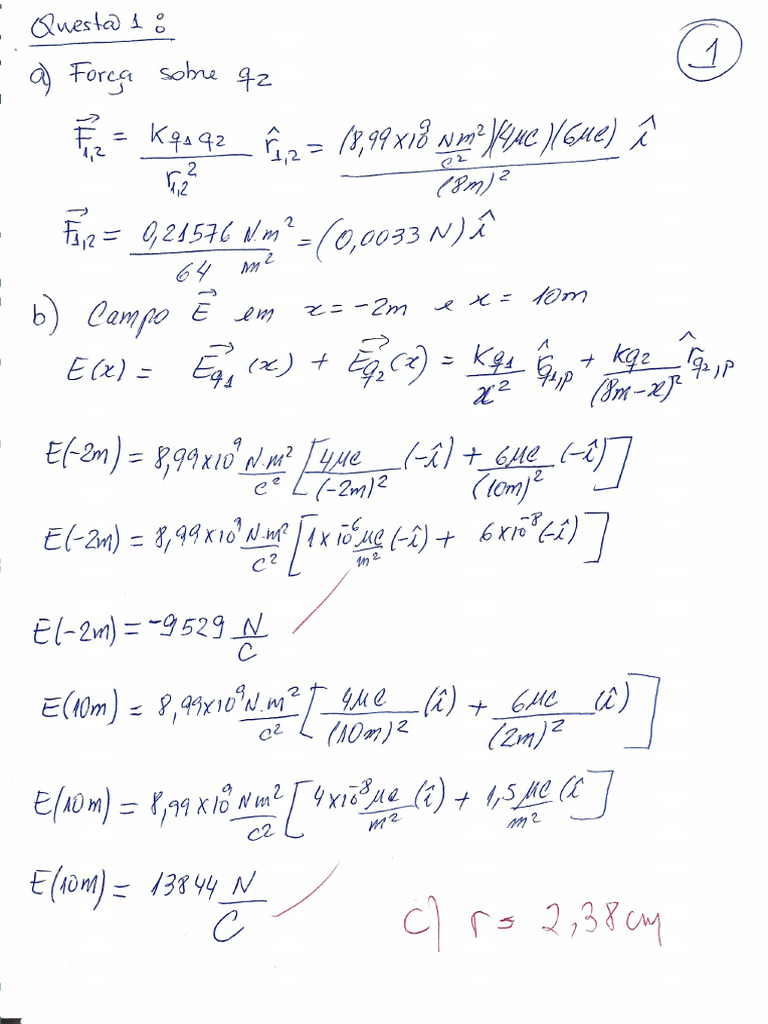 Questão 1:
1
a) Força sobre q2
F⃗1,2 = Kq1q2/r1,2² r̂1,2 = (8,99x10⁹ Nm²/c²)(4μc)(6μc)/(8m)² î
F⃗1,2 = 0,21576 N.m²/64 m² = (0,0033 N) î
b) Campo E⃗ em x = -2m e x = 10m
E(x) = E⃗q1(x) + E⃗q2(x) = Kq1/x² r̂q1,p + Kq2/(8m-x)² r̂q2,p
E(-2m) = 8,99x10⁹ N.m²/c² [4μc/(-2m)² (-î) + 6μc/(10m)² (-î)]
E(-2m) = 8,99x10⁹ N.m²/c² [1x10⁻⁶ μc/m² (-î) + 6x10⁻⁸ (-î)]
E(-2m) = -9529 N/C
E(10m) = 8,99x10⁹ N.m²/c² [4μc/(10m)² (î) + 6μc/(2m)² (î)]
E(10m) = 8,99x10⁹ Nm²/c² [4x10⁻⁸ μc/m² (î) + 1,5 μc/m² (î]
E(10m) = 13844 N/C
c) r = 2,38cm